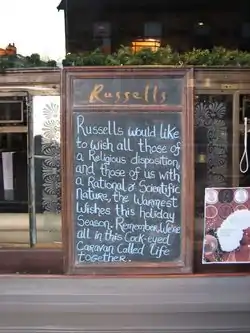 Russells
Russells would like
to wish all those of
a Religious disposition,
and those of us with
a Rational & Scientific
Nature, the Warmest
Wishes this holiday
Season. Remember, We're
all in this Cock-eyed
Caravan Called Life
together.